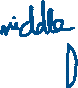 middle
D